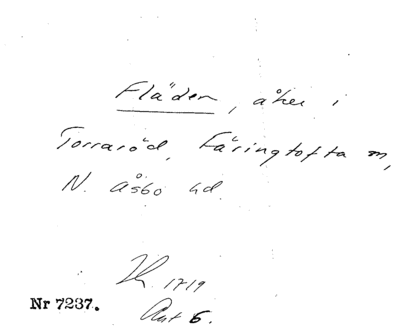 Fläden, åker i
Torraröd, Färingtofta sn,
N. Åsbo hd.
1719
Akt 6.
Nr 7237.